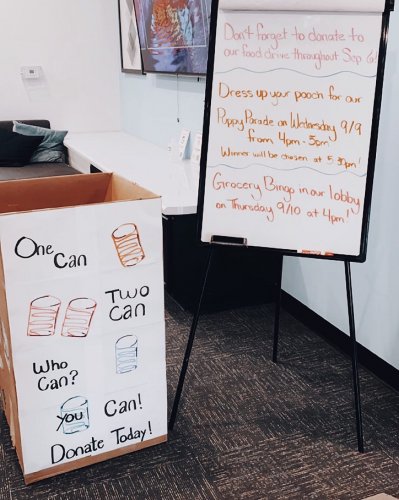 Don't forget to donate to
our food drive throughout Sep 6!
Dress up your pooch for our
Puppy Parade on Wednesday 9/9
from 4pm-5pm
Winner will be chosen at 5:30pm!
Grocery Bingo in our lobby
on Thursday 9/10 at 4pm!
One
Can
Two
Can
Who
Can?
you Can!
Donate Today!